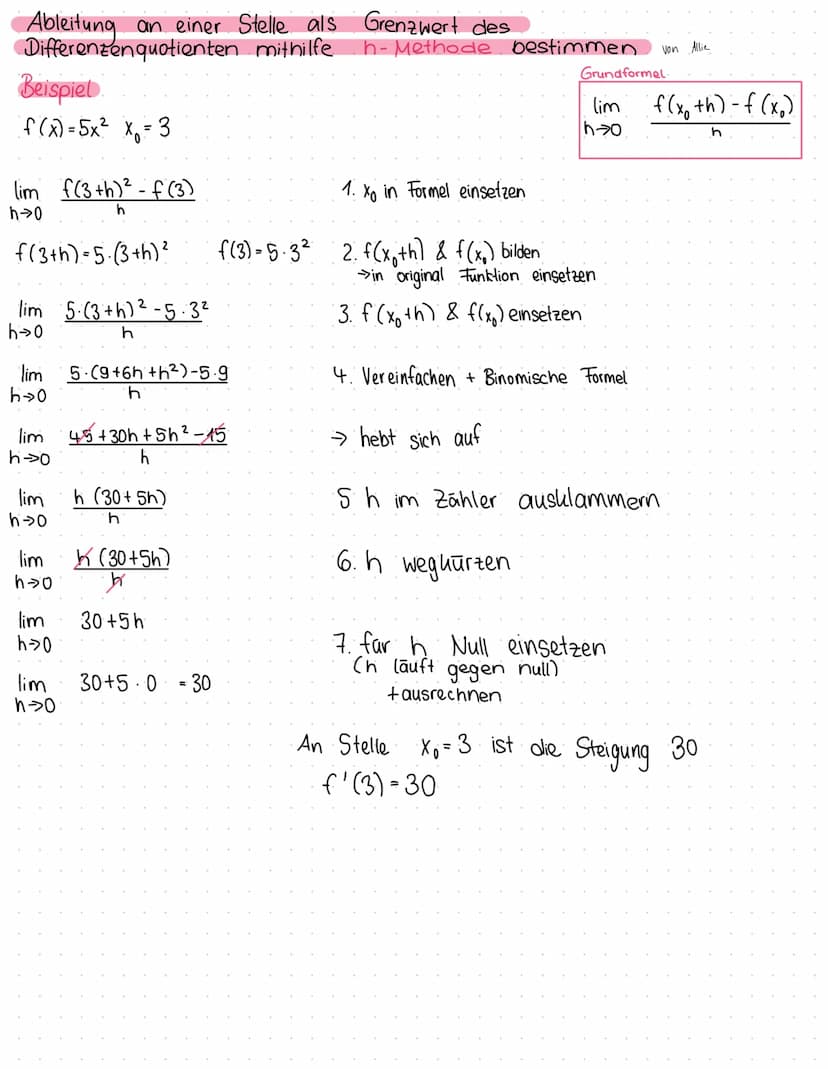 Ableitung an einer Stelle als Grenzwert des
Differenzenquotienten mithilfe h-Methode bestimmen von Allie
Beispiel
Grundformel
f(x)=5x² x₀=3
lim h→0 f(x₀+h)-f(x₀) / h
lim h→0 f(3+h)²-f(3) / h 1. x₀ in Formel einsetzen
f(3+h)=5·(3+h)² f(3)=5·3² 2. f(x₀+h) & f(x₀) bilden
→in original Funktion einsetzen
lim h→0 5·(3+h)²-5·3² / h 3. f(x₀+h) & f(x₀) einsetzen
lim h→0 5·(9+6h+h²)-5·9 / h 4. Vereinfachen + Binomische Formel
lim h→0 45+30h+5h²-45 / h → hebt sich auf
lim h→0 h(30+5h) / h 5 h im Zähler ausklammern
lim h→0 h(30+5h) / h 6. h wegkürzen
lim h→0 30+5h
7. für h Null einsetzen
(h läuft gegen null)
lim h→0 30+5·0 =30
+ausrechnen
An Stelle x₀=3 ist die Steigung 30
f'(3)=30